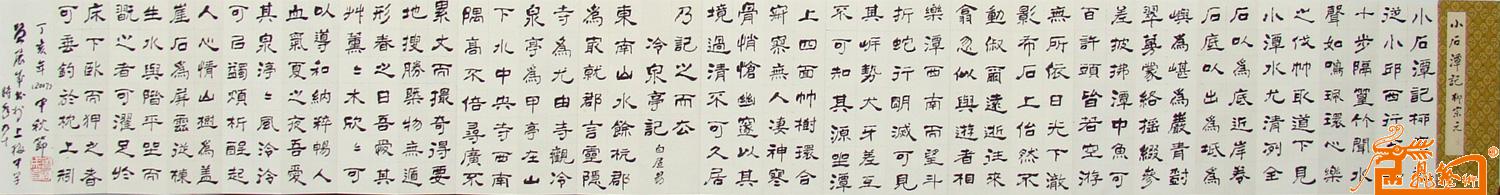 小石潭記 柳宗元
小石潭記 柳宗元
從小邱西行百二
十步隔篁竹聞水
聲如鳴珮環心樂
之伐竹取道下見
小潭水尤清冽全
石以為底近岸卷
石底以出為坻為
嶼為嵁為巖青樹
翠蔓蒙絡搖綴參
差披拂潭中魚可
百許頭皆若空游
無所依日光下澈
影布石上佁然不
動俶爾遠逝往來
翕忽似與遊者相
樂潭西南而望斗
折蛇行明滅可見
其岸勢犬牙差互
不可知其源坐潭
上四面竹樹環合
寂寥無人凄神寒
骨悄愴幽邃以其
境過清不可久居
乃記之而去
冷泉亭記 白居易
東南山水餘杭郡
為最就郡言靈隱
寺為尤由寺觀冷
泉亭為甲亭在山
下水中央寺西南
隅高不倍尋廣不
累丈而撮奇得要
地搜勝槩物無遁
形春之日吾愛其
艸薰薰木欣欣可
以導和納粹暢人
血氣夏之夜吾愛
其泉渟渟風泠泠
可以蠲煩析醒起
人心情山樹為蓋
崖石為屏雲從棟
生水與階平坐而
翫之者可濯足於
床下臥而狎之者
可垂釣於枕上矧
丁亥年(2007)中秋節
於上梅中學